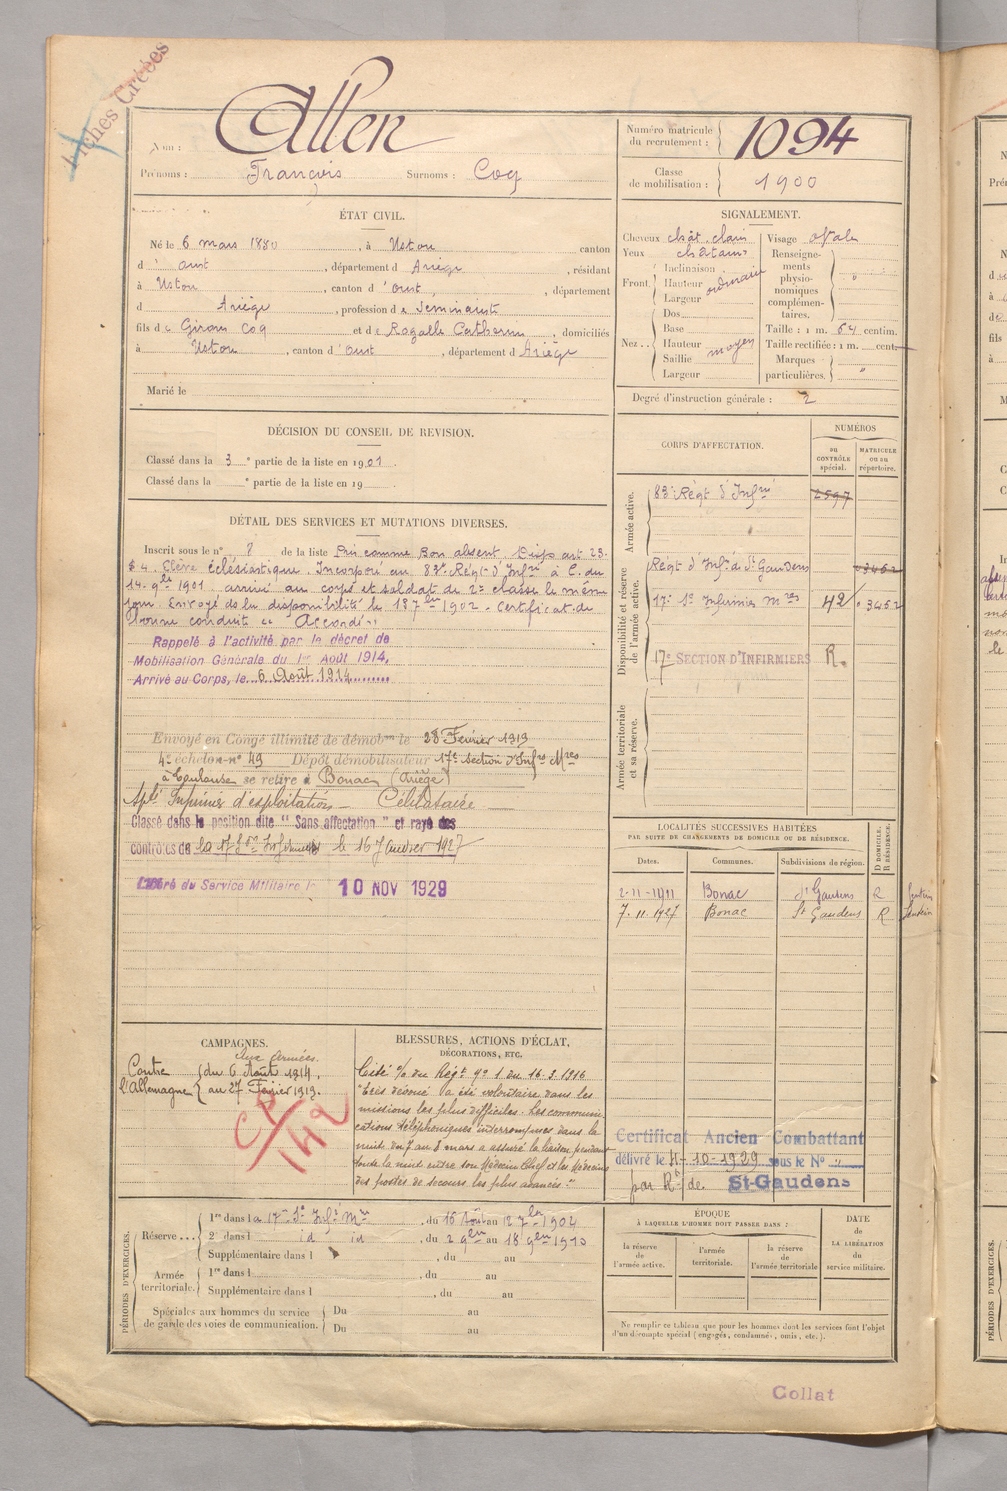 Fiches Créées
Nom : Allen
Prénoms : François Surnoms : Coq
Numéro matricule du recrutement : 1094
Classe de mobilisation : 1900
ÉTAT CIVIL.
Né le 6 mars 1880, à Ustou canton
d'Oust, département d Ariège, résidant
à Ustou, canton d'Oust, département
d Ariège, profession de Seminariste
fils de Girons Coq et de Rogalle Catherine, domiciliés
à Ustou, canton d'Oust, département d Ariège
Marié le
SIGNALEMENT.
Cheveux chât. clairs
Yeux châtains
Front Inclinaison
Hauteur ordinaire
Largeur
Nez Dos
Base
Hauteur moyen
Saillie
Largeur
Visage ovale
Renseignements physionomiques complémentaires. "
Taille : 1 m. 64 centim.
Taille rectifiée : 1 m. cent.
Marques particulières. "
Degré d'instruction générale : 2
DÉCISION DU CONSEIL DE REVISION.
Classé dans la 3e partie de la liste en 1901.
Classé dans la e partie de la liste en 19
DÉTAIL DES SERVICES ET MUTATIONS DIVERSES.
Inscrit sous le n° 8 de la liste Pris comme Bon absent. Disp. art 23.
§ 4. Élève écclésiastique. Incorporé au 83e Régt d'Infrie à C. du
14. 9bre 1901 arrivé au corps et soldat de 2e classe le même
jour. Envoyé ds la disponibilité le 18 7bre 1902. Certificat de
bonne conduite "Accordé"
Rappelé à l'activité par le décret de
Mobilisation Générale du 1er Août 1914,
Arrivé au Corps, le 6 Août 1914
Envoyé en Congé illimité de démobon le 28 Février 1919
4e échelon n° 49 Dépôt démobilisateur 17e Section d'Infrs Mres
à Toulouse se retire à Bonac (Ariège)
Célibataire
Classé dans la position dite "Sans affectation" et rayé des
contrôles de la 17 Son Infirmiers le 16 Janvier 1927
Libéré du Service Militaire le 10 NOV 1929
CORPS D'AFFECTATION.
NUMÉROS
au CONTRÔLE spécial.
MATRICULE ou au répertoire.
Armée active.
83e Régt d'Infrie 2597
Disponibilité et réserve de l'armée active.
Régt d'Infie de St Gaudens 3452
17e Son Infirmiers Mres 42 3452
17e SECTION D'INFIRMIERS R.
Armée territoriale et sa réserve.
LOCALITÉS SUCCESSIVES HABITÉES
PAR SUITE DE CHANGEMENTS DE DOMICILE OU DE RÉSIDENCE.
Dates. Communes. Subdivisions de région. D DOMICILE. R RÉSIDENCE.
2-11-1911 Bonac St Gaudens R Sentein
7.11.1927 Bonac St Gaudens R Sentein
CAMPAGNES.
Aux Armées.
Contre l'Allemagne du 6 Août 1914.
au 27 Février 1919.
BLESSURES, ACTIONS D'ÉCLAT,
DÉCORATIONS, ETC.
Cité o/ du Régt n° 1 du 16.3.1916
"Très dévoué a été volontaire dans les
missions les plus difficiles. Les communi-
cations téléphoniques interrompues dans la
nuit du 7 au 8 mars a assuré la liaison pendant
toute la nuit entre son Médecin Chef et les Médecins
des postes de secours les plus avancés."
Certificat Ancien Combattant
délivré le 4-10-1929 sous le N° "
par R. de St-Gaudens
PÉRIODES D'EXERCICES.
Réserve 1re dans la 17e Son Infrs Mres, du 16 Août au 12 7bre 1904
2e dans l id id, du 2 9bre au 18 9bre 1910
Supplémentaire dans l , du au
Armée territoriale. 1re dans l , du au
Supplémentaire dans l , du au
Spéciales aux hommes du service
de garde des voies de communication.
Du au
Du au
ÉPOQUE
À LAQUELLE L'HOMME DOIT PASSER DANS :
la réserve de l'armée active.
l'armée territoriale.
la réserve de l'armée territoriale
DATE
de
LA LIBÉRATION
du
service militaire.
Ne remplir ce tableau que pour les hommes dont les services font l'objet
d'un décompte spécial (engagés, condamnés, omis, etc.).
Collat